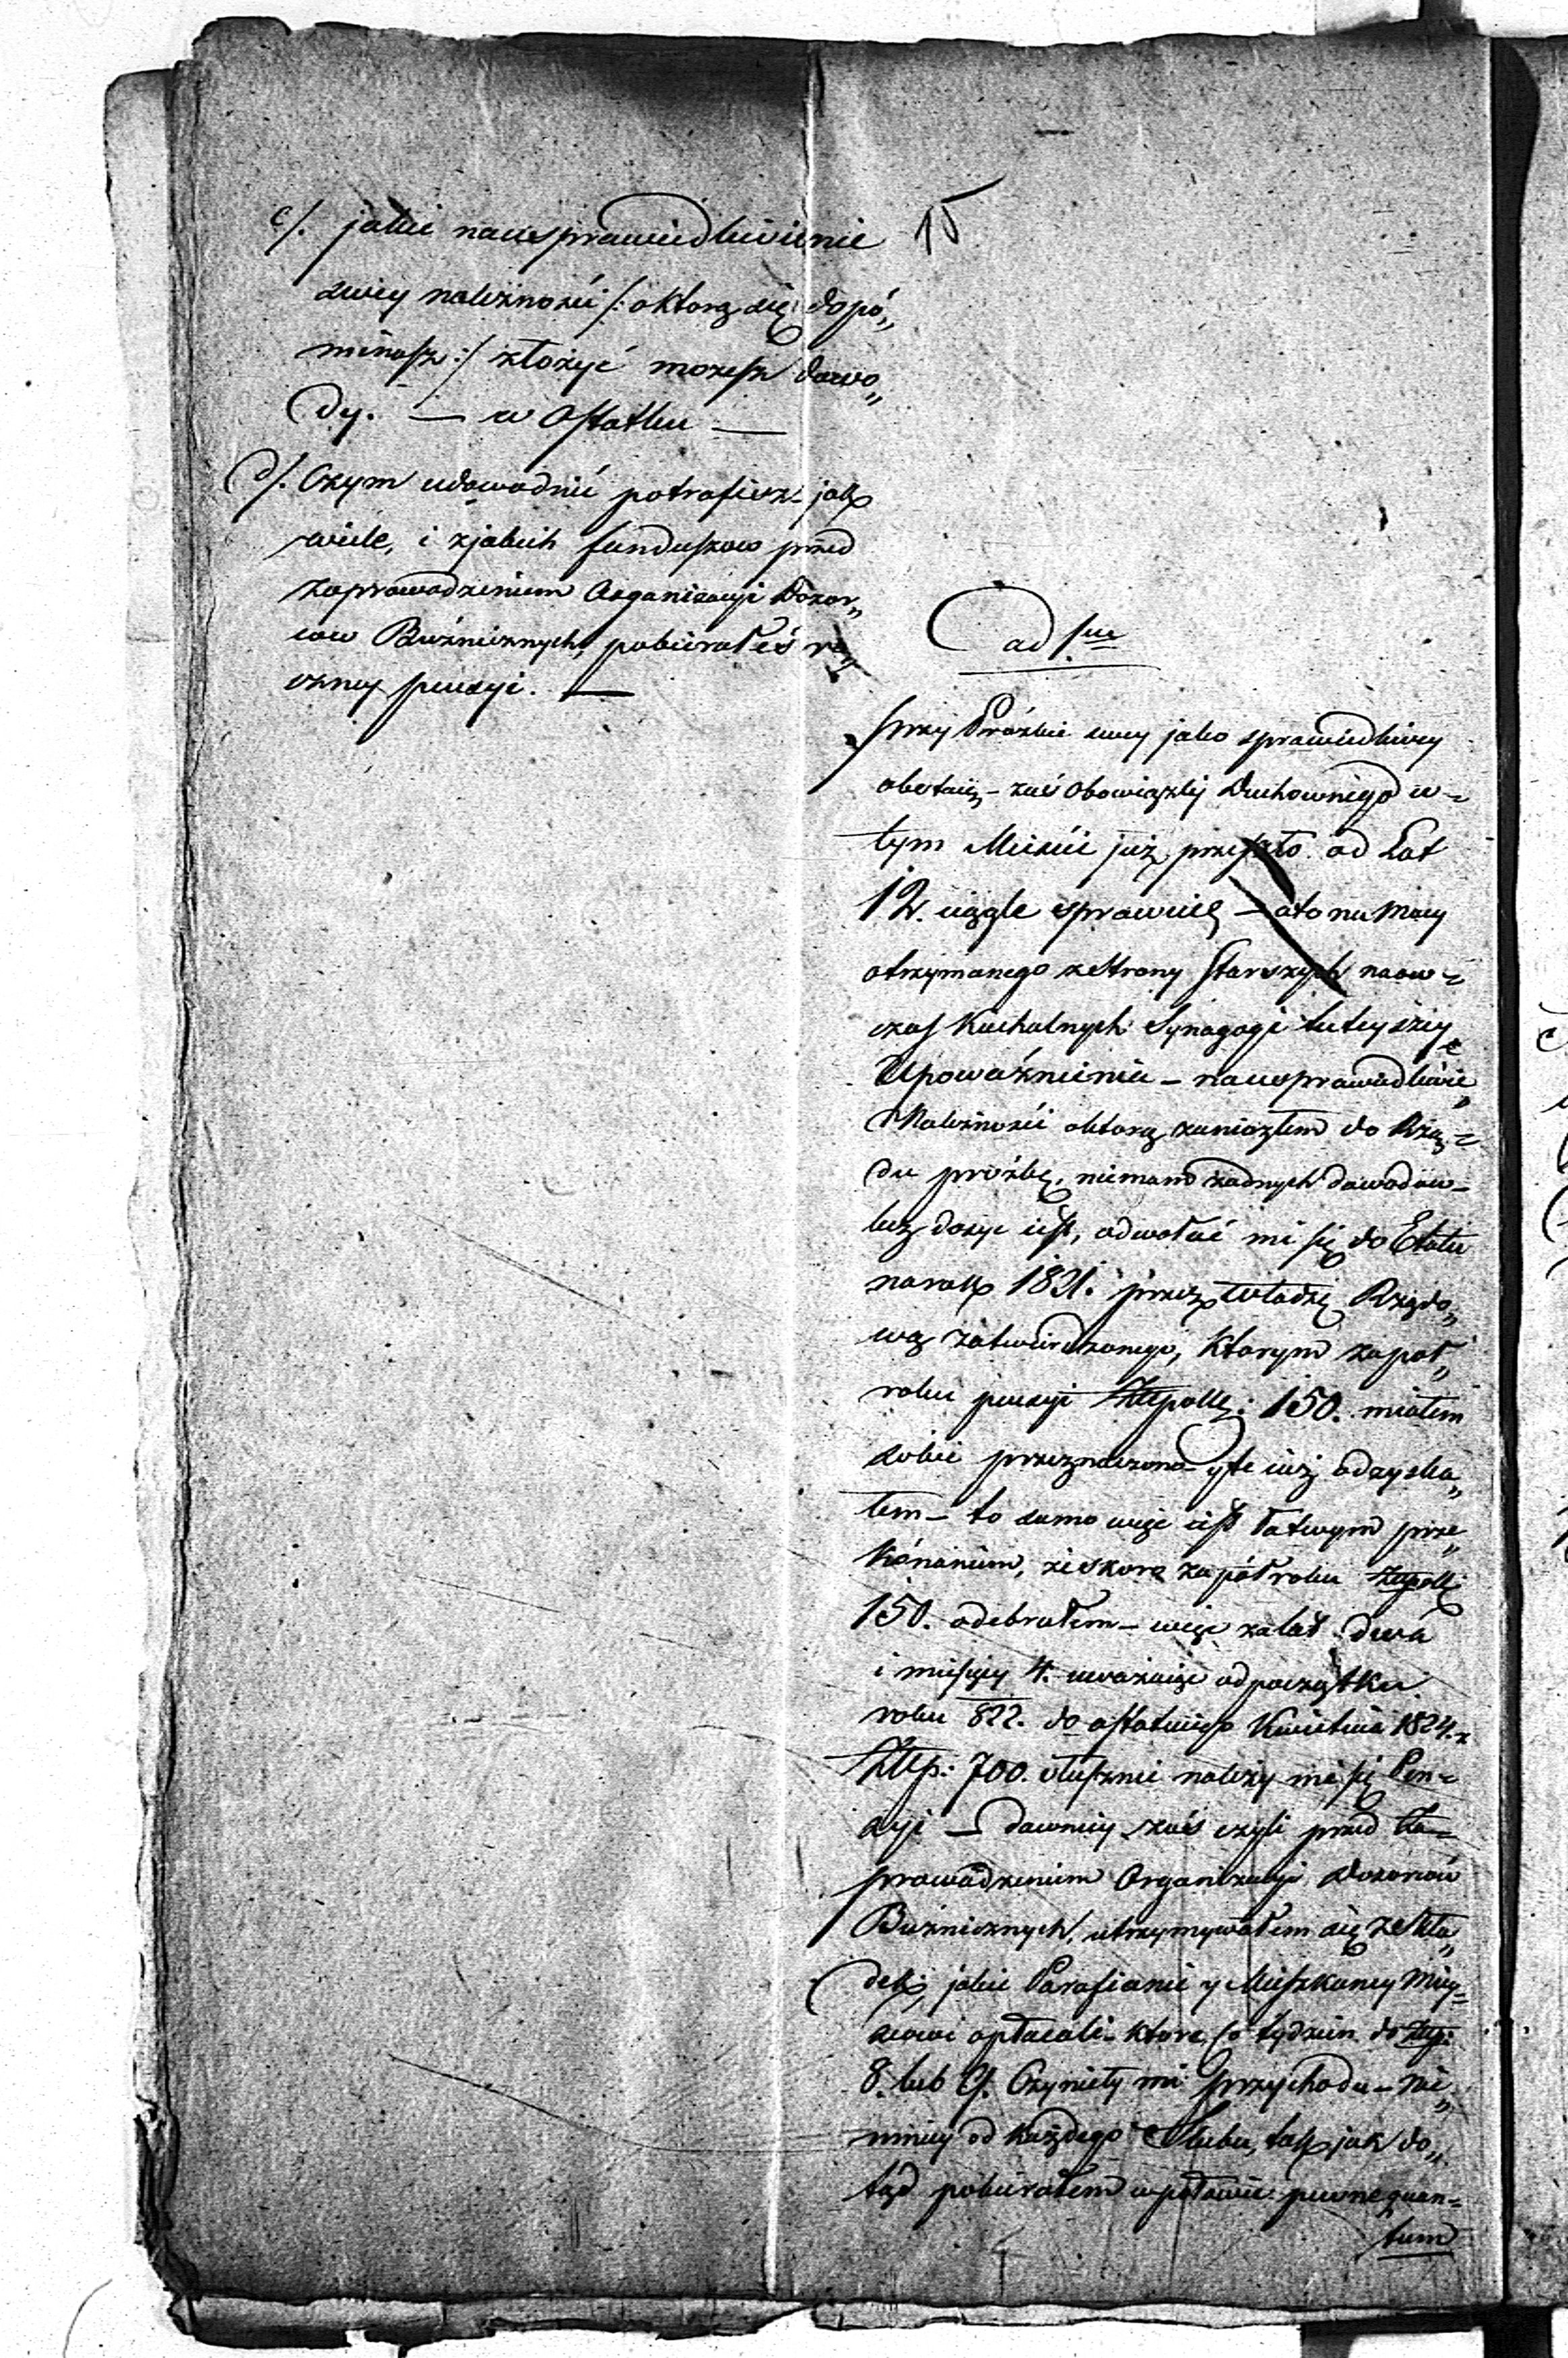 c/. jakie na usprawiedliwienie
swey należności /: o którą się dopó„
minasz :/ złożyć możesz dowo„
dy. — w Ostatku —
d/. Czym udowodnić potrafisz jak
wiele, i z jakich funduszow przed
zaprowadzeniem Organizacyi Dozor„
cow Bużnicznych, pobierałeś ro„
czney pensyi. —
15
ad 1mo
przy Prożbie swey jako sprawiedliwey
obstaię – zaś Obowiązki Duchownego w=
tym Mieście już przeszło od Lat
12. ciągle sprawuię – a to na mocy
otrzymanego ze strony Starszych naow=
czas Kachalnych Synagogi tuteyszey
Upoważnienia – na usprawiedliwie„
Należności o którą zaniozłem do Rzą=
du prożbę, niemam żadnych dowodow –
lecz dosyc iest, odwołać mi się do Etatu
na rok 1821. przez Władzę Rządo„
wą zatwierdzonego, ktorym za poł„
roku pensyi Złtpolk: 150. miałem
sobie przeznaczono – y te iuż odzyska„
łem – to samo więc iest łatwym prze„
konaniem, że skoro za pół roku Złtpolk:
150. odebrałem – więc za lat dwa
i miesięcy 4. uważaiąc od początku
roku 822. do ostatniego Kwietnia 1824. r.
Złtp: 700. słusznie należy mi się Pen=
syi – dawniey zaś czyli przed Za=
prowadzeniem Organizacyi Dozorów
Bużnicznych, utrzymywałem się ze skła„
dek, jakie Parafianie y Mieszkancy Miey=
scowi opłacali – ktore co tydzien do złtp:
8. lub 9. Czyniły mi przychodu – nie„
mniey od każdego Slubu, tak jak do„
tąd pobierałem w połowie pewne quan=
tum